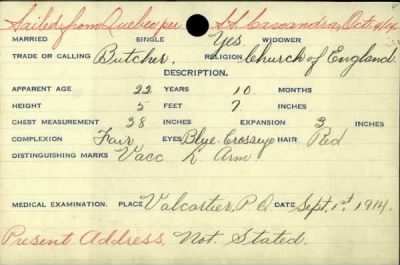 Sailed from Quebec per S.S. Cassandra, Oct. 4/14
MARRIED SINGLE Yes WIDOWER
TRADE OR CALLING Butcher. RELIGION Church of England.
DESCRIPTION.
APPARENT AGE 22 YEARS 10 MONTHS
HEIGHT 5 FEET 7 INCHES
CHEST MEASUREMENT 38 INCHES EXPANSION 3 INCHES
COMPLEXION Fair EYES Blue-Crosseye HAIR Red
DISTINGUISHING MARKS Vacc L Arm
MEDICAL EXAMINATION. PLACE Valcartier, P.Q. DATE Sept. 1st 1914.
Present Address. Not Stated.